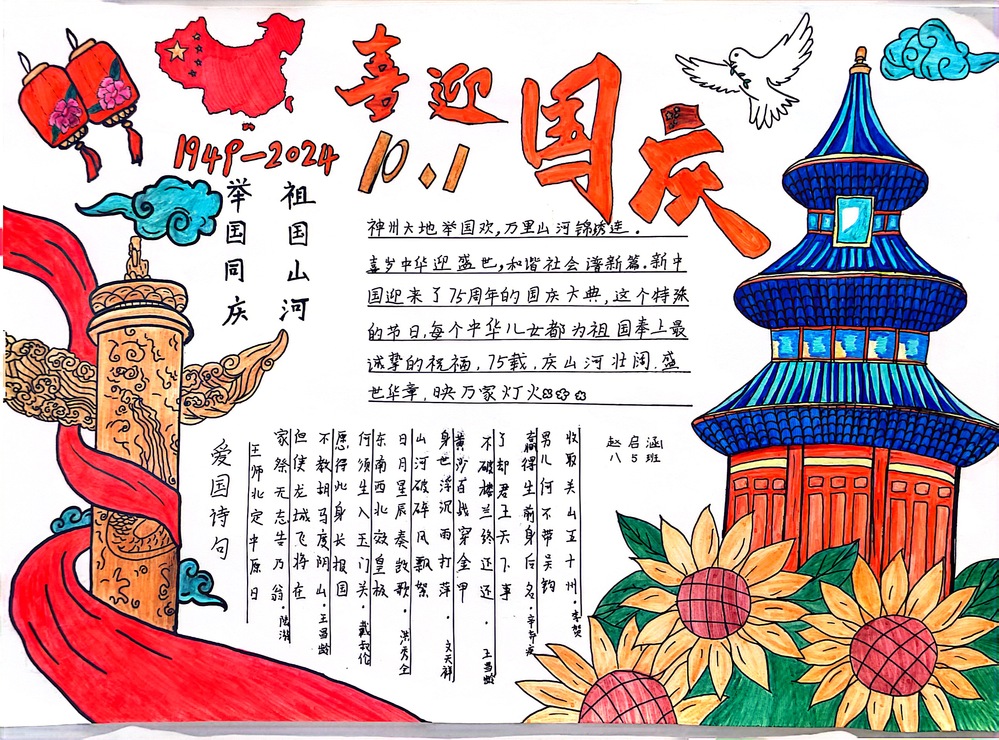 喜迎国庆
1949—2024
10.1
祖国山河
举国同庆
神州大地举国欢,万里山河锦绣连.
喜岁中华迎盛世,和谐社会谱新篇.新中
国迎来了75周年的国庆大典,这个特殊
的节日,每个中华儿女都为祖国奉上最
诚挚的祝福,75载,庆山河壮阔.盛
世华章,映万家灯火
赵启涵
八5班
爱国诗句
王师北定中原日
家祭无忘告乃翁·陆游
但使龙城飞将在
不教胡马度阴山·王昌龄
愿得此身长报国
何须生入玉门关·戴叔伦
东南西北效皇极
日月星辰奏凯歌·洪秀全
山河破碎风飘絮
身世浮沉雨打萍·文天祥
黄沙百战穿金甲
不破楼兰终还还·王昌龄
了却君王天下事
赢得生前身后名·辛弃疾
男儿何不带吴钩
收取关山五十州·李贺